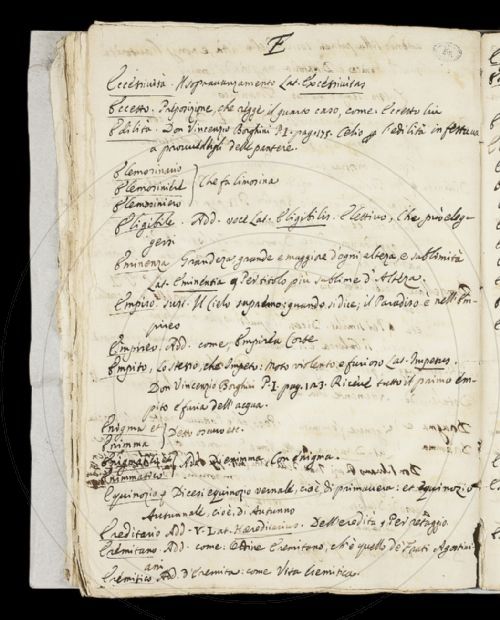 E
Eccessività. Il sopravanzamento Lat. Excessivitas
Eccetto. Preposizione, che regge il quarto caso, come: Eccetto lui
Edilità. Don Vincenzio Borghini P.I. pag. 175. Celio Edilità in festava
a delle pantere.
Elemosinario
Elemosiniere
Elemosiniero
Che fa limosina
Eligibile. Add. voce Lat. Eligibilis. Elettivo, Che può eleg-
gersi
Eminenza Grandezza grande e maggiore d'ogni altezza e sublimità
Lat. Eminentia Per titolo più sublime d'Altezza.
Empireo. sust. Il Cielo supremo: quando si dice; il Paradiso è nell'Em-
pireo
Empireo. Add. come, Empirea Corte
Empito, Lo stesso, che Impeto: Moto violento e furioso Lat. Impetus.
Don Vincenzio Borghini P.I. pag. 123. Riceve tutto il primo em-
pito e furia dell'acqua.
Enigma et
Enimma
Detto oscuro etc.
Enigmatico et
Enimmatico
Add. D'enimma, Con enigma.
Equinozio Dicesi equinozio vernale, cioè di primavera: et equinozio
Autunnale, cioè, di Autunno
Ereditario Add. V. Lat. Haereditarius. Dell'eredità, Per retaggio.
Eremitano Add. come: Ordine Eremitano, ch'è quello de' Frati Agostini-
ani
Eremitico Add. d'Eremita: come Vita Eremitica.